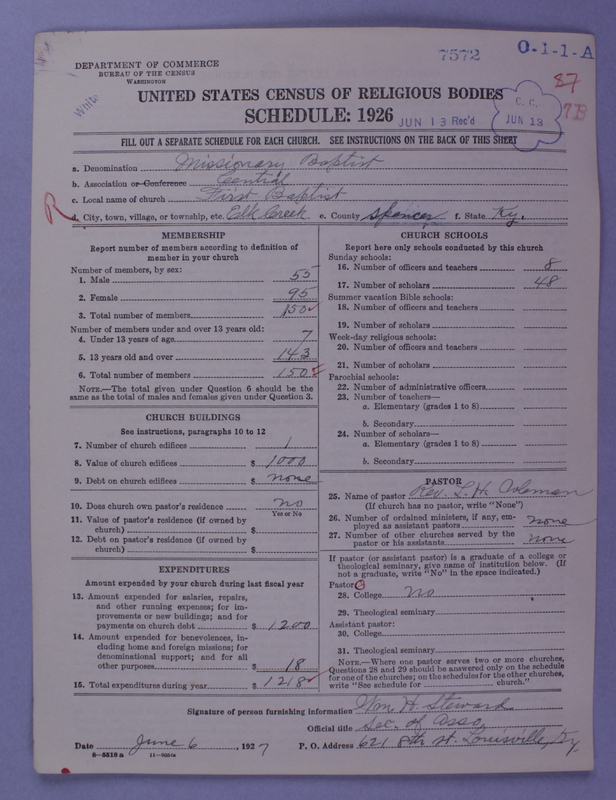 7572
O-1-1-A
DEPARTMENT OF COMMERCE
BUREAU OF THE CENSUS
WASHINGTON
White
87
7B
UNITED STATES CENSUS OF RELIGIOUS BODIES
SCHEDULE: 1926
JUN 13 Rec'd
C. C.
JUN 13
FILL OUT A SEPARATE SCHEDULE FOR EACH CHURCH. SEE INSTRUCTIONS ON THE BACK OF THIS SHEET
a. Denomination Missionary Baptist
b. Association or Conference Central
c. Local name of church First Baptist
R
d. City, town, village, or township, etc. Elk Creek e. County Spencer f. State Ky.
MEMBERSHIP
Report number of members according to definition of
member in your church
Number of members, by sex:
1. Male 55
2. Female 95
3. Total number of members 150
Number of members under and over 13 years old:
4. Under 13 years of age 7
5. 13 years old and over 143
6. Total number of members 150
NOTE.—The total given under Question 6 should be the
same as the total of males and females given under Question 3.
CHURCH BUILDINGS
See instructions, paragraphs 10 to 12
7. Number of church edifices 1
8. Value of church edifices $ 1000
9. Debt on church edifices $ none
10. Does church own pastor's residence no
Yes or No
11. Value of pastor's residence (if owned by
church) $
12. Debt on pastor's residence (if owned by
church) $
EXPENDITURES
Amount expended by your church during last fiscal year
13. Amount expended for salaries, repairs,
and other running expenses; for im-
provements or new buildings; and for
payments on church debt $ 1200
14. Amount expended for benevolences, in-
cluding home and foreign missions; for
denominational support; and for all
other purposes $ 18
15. Total expenditures during year $ 1218
CHURCH SCHOOLS
Report here only schools conducted by this church
Sunday schools:
16. Number of officers and teachers 8
17. Number of scholars 48
Summer vacation Bible schools:
18. Number of officers and teachers
19. Number of scholars
Week-day religious schools:
20. Number of officers and teachers
21. Number of scholars
Parochial schools:
22. Number of administrative officers
23. Number of teachers—
a. Elementary (grades 1 to 8)
b. Secondary
24. Number of scholars—
a. Elementary (grades 1 to 8)
b. Secondary
PASTOR
25. Name of pastor Rev. L. H. Coleman
(If church has no pastor, write "None")
26. Number of ordained ministers, if any, em-
ployed as assistant pastors none
27. Number of other churches served by the
pastor or his assistants none
If pastor (or assistant pastor) is a graduate of a college or
theological seminary, give name of institution below. (If
not a graduate, write "No" in the space indicated.)
Pastor:
28. College no
29. Theological seminary
Assistant pastor:
30. College
31. Theological seminary
NOTE.—Where one pastor serves two or more churches,
Questions 28 and 29 should be answered only on the schedule
for one of the churches; on the schedules for the other churches,
write "See schedule for church."
Signature of person furnishing information Wm. H. Steward
Official title Sec. of Asso.
Date June 6, 1927 P. O. Address 621 8th st. Louisville, Ky.
8—5518 a